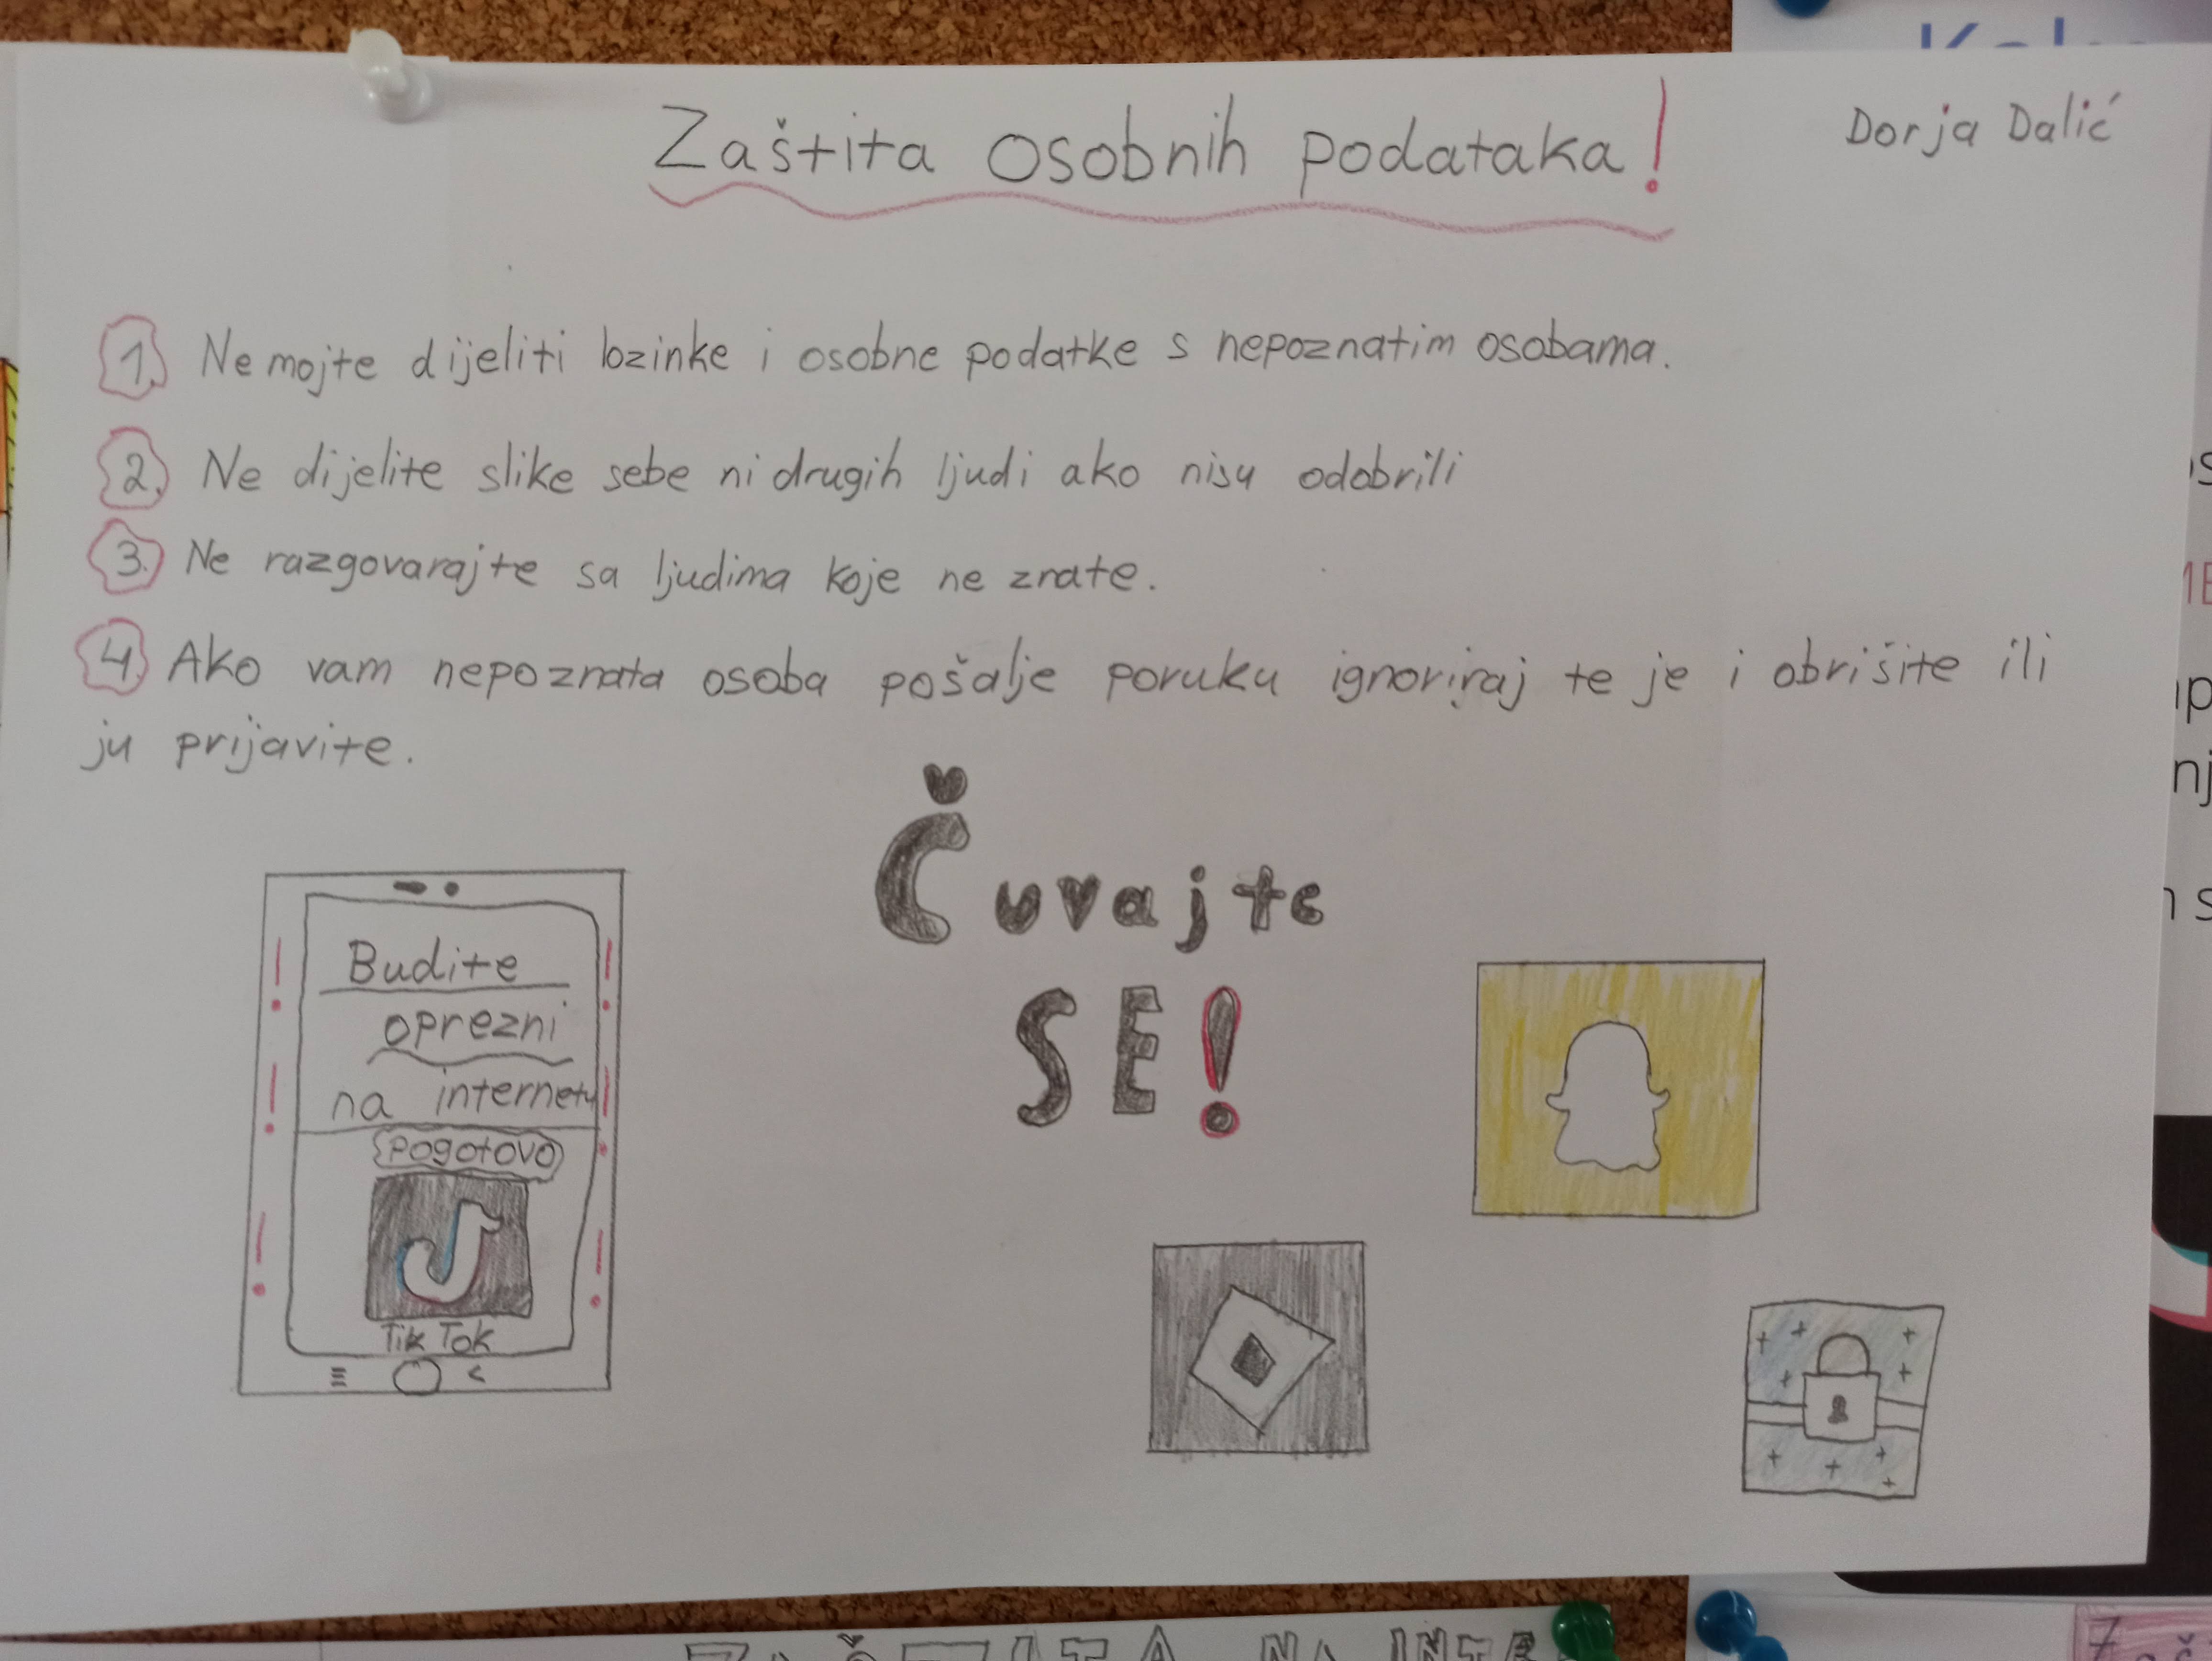 Zaštita osobnih podataka!
Dorja Dalić
1. Nemojte dijeliti lozinke i osobne podatke s nepoznatim osobama.
2. Ne dijelite slike sebe ni drugih ljudi ako nisu odobrili
3. Ne razgovarajte sa ljudima koje ne znate.
4. Ako vam nepoznata osoba pošalje poruku ignorirajte je i obrišite ili
ju prijavite.
Čuvajte
SE!
Budite
oprezni
na internetu
pogotovo
Tik Tok